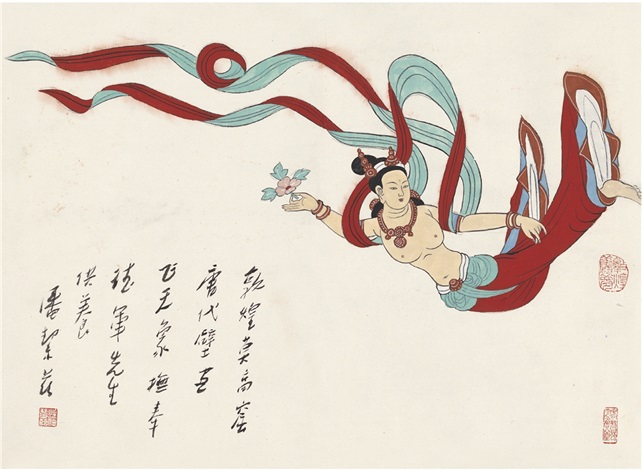 敦煌莫高窟
唐代壁画
飞天象撫奉
軍先生
供養
潘絜茲